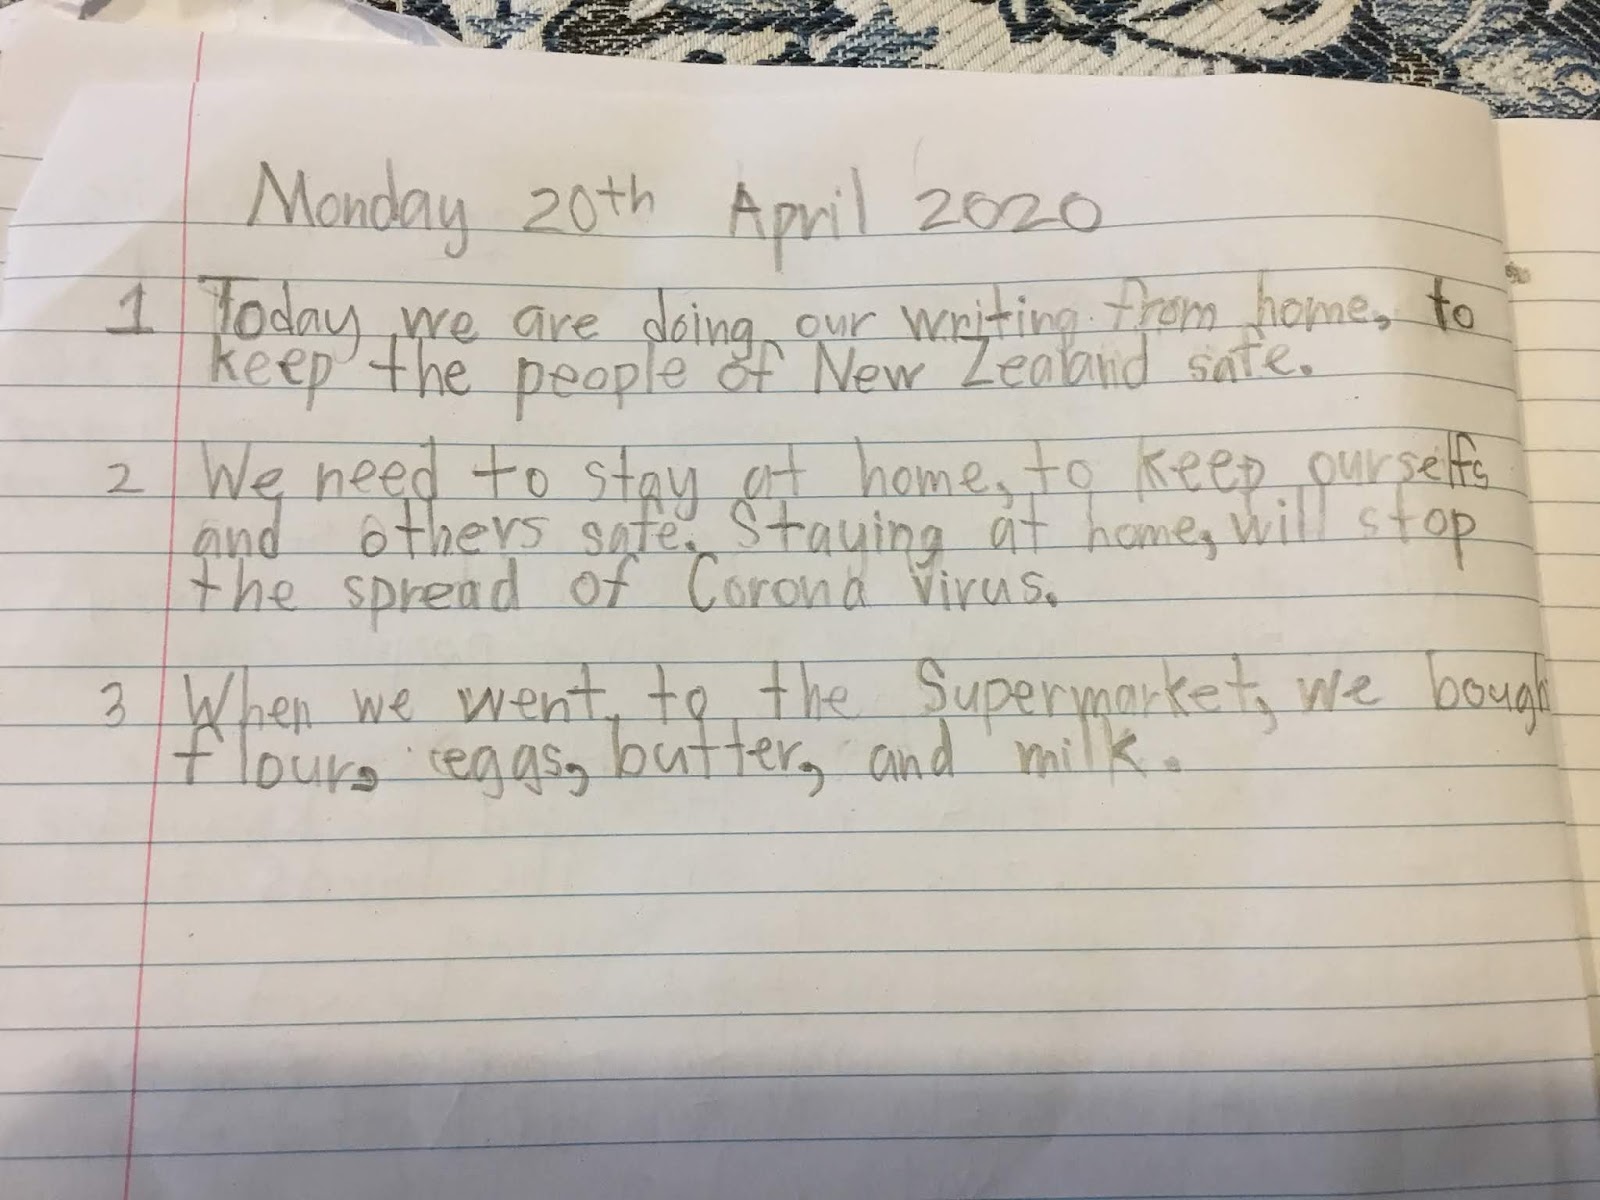 Monday 20th April 2020
1 Today we are doing our writing from home, to
keep the people of New Zealand safe.
2 We need to stay at home, to keep ourselfs
and others safe. Staying at home, will stop
the spread of Corona Virus.
3 When we went to the Supermarket, we bough
flour, eggs, butter, and milk.